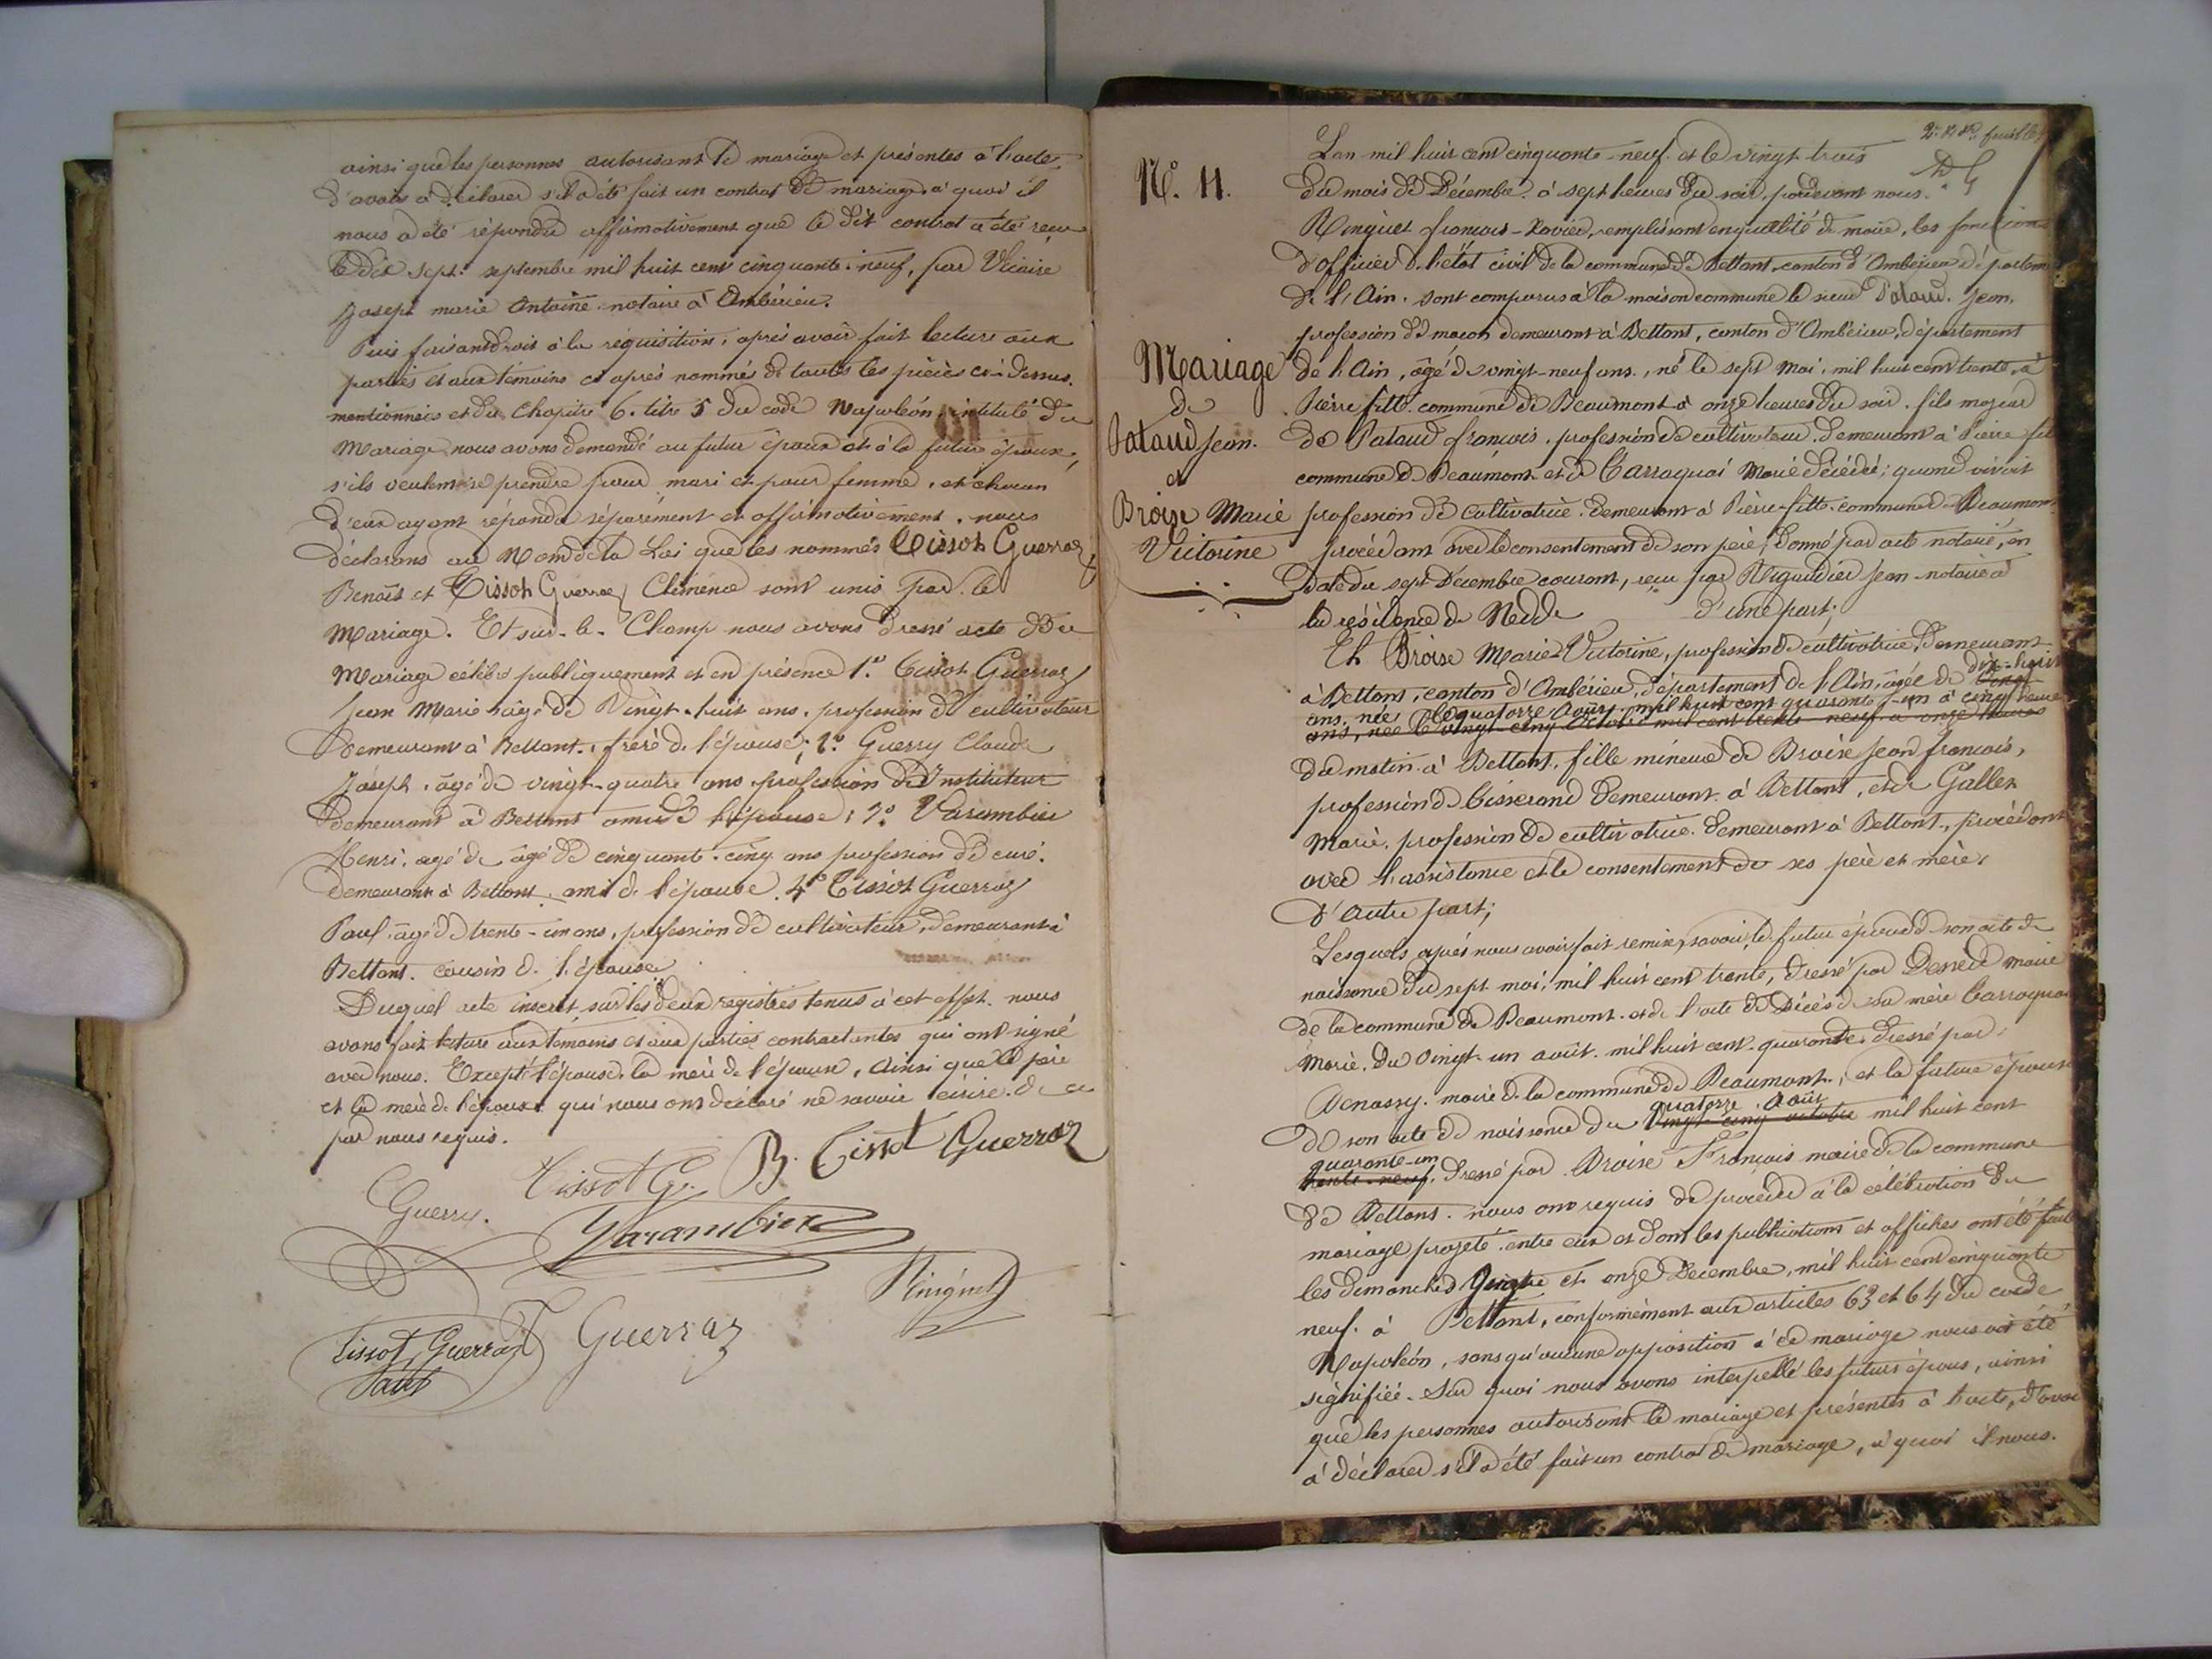 ainsi que les personnes autorisant le mariage et présentes à l'acte
d'avoir à déclarer s'il a été fait un contrat de mariage à quoi il
nous a été répondu affirmativement que le dit contrat a été reçu
le dix sept septembre mil huit cent cinquante neuf, par Vicaire
Joseph marie Antoine notaire à Ambérieu.
Puis faisant droit à la réquisition, après avoir fait lecture aux
parties et aux témoins ci après nommés de toutes les pièces ci-dessus
mentionnées et du chapitre 6. titre 5 du code Napoléon, intitulé du
Mariage nous avons demandé au futur époux et à la future épouse,
s'ils veulent se prendre pour mari et pour femme, et chacun
d'eux ayant répondu séparément et affirmativement, nous
déclarons au Nom de la Loi que les nommés Tissot Guerraz
Benoît et Tissot Guerraz Clémence sont unis par le
Mariage. Et sur-le-Champ nous avons dressé acte du
Mariage célébré publiquement et en présence 1.° Tissot Guerraz
Jean Marie âgé de Vingt-huit ans, profession de cultivateur
demeurant à Bettant, frère de l'épouse; 2.° Guerry Claude
Joseph, âgé de vingt-quatre ans profession de Instituteur
demeurant à Bettant ami de l'épouse; 3.° Varambier
Henri, agé de âgé de cinquante-cinq ans profession de curé.
demeurant à Bettant ami de l'épouse. 4° Tissot Guerraz
Paul, âgé de trente-un ans, profession de cultivateur, demeurant à
Bettant. cousin de l'épouse.
Duquel acte inscrit sur les deux registres tenus à cet effet. nous
avons fait lecture aux témoins et aux parties contractantes qui ont signé
avec nous. Excepté l'épouse, la mère de l'épouse, ainsi que le père
et la mère de l'époux qui nous ont déclaré ne savoir écrire de ce
par nous requis.
Guerry. Tissot G. B. Tissot Guerraz
Varambier
Ringuet
Tissot Guerraz Guerraz
Paul
2.e feuillet
N.° 11.
Mariage
de
Pataud Jean.
et
Broise Marie
Victorine
L'an mil huit cent cinquante-neuf et le vingt-trois
du mois de Décembre à sept heures du soir, pardevant nous.
Rinquet françois-Xavier, remplissant en qualité de maire, les fonctions
d'officier de l'état civil de la commune de Bettant, canton d'Ambérieu départem
de l'Ain. sont comparus à la maison commune le sieur Pataud Jean,
profession de maçon demeurant à Bettant, canton d'Ambérieu, département
de l'Ain, âgé de vingt-neuf ans, né le sept Mai, mil huit cent trente, à
Pierre fitte commune de Beaumont à onze heures du soir. fils majeur
de Pataud françois, profession de cultivateur demeurant à Pierre fit
commune de Beaumont et de Carraquai Marie décédée; quand vivait
profession de Cultivatrice. demeurant à Pierre-fitte. commune de Beaumont
procédant avec le consentement de son père, donné par acte notarié, en
Date du sept Décembre courant, reçu par Rigaudier Jean-notaire à
la résidence de Nedde d'une part;
Et Broise Marie-Victorine, profession de cultivatrice, demeurant
à Bettant, canton d'Ambérieu, département de l'Ain, âgée de dix-huit
ans, née le quatorze Août mil huit cent quarante-un à cinq heures
ans, née le vingt-cinq Octobre mil huit cent trente-neuf à onze heures
du matin à Bettant, fille mineure de Broise Jean françois,
profession de Tisserand demeurant à Bettant, et de Gallet
Marie, profession de cultivatrice. demeurant à Bettant, procédant
avec l'assistance et le consentement de ses père et mère,
d'Autre part;
Lesquels après nous avoir fait remise, savoir, le futur époux de son acte de
naissance du sept mai, mil huit cent trente, dressé par maire
de la commune de Beaumont et de l'acte de Décès de sa mère Carraquai
Marie. du Vingt-un août. mil huit cent-quarante. dressé par,
maire de la commune de Beaumont, et la future épouse
de son acte de naissance du quatorze Août vingt-cinq octobre mil huit cent
quarante-un
trente-neuf. dressé par Broise François maire de la commune
de Bettant. nous ont requis de procéder à la célébration du
mariage projeté entre eux et dont les publications et affiches ont été faites
les dimanches quatre et onze Décembre, mil huit cent cinquante
neuf. à Bettant, conformément aux articles 63 et 64 du code
Napoléon, sans qu'aucune opposition à ce mariage nous ait été
signifiée. Sur quoi nous avons interpellé les futurs époux, ainsi
que les personnes autorisant le mariage et présentes à l'acte, d'avoir
à déclarer s'il a été fait un contrat de mariage, à quoi il nous.